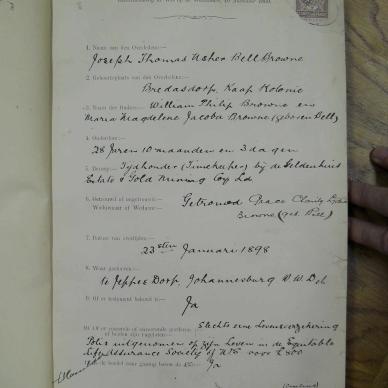 1. Naam van den Overledene:—
Joseph Thomas Usher Bell Browne
2. Geboorteplaats van den Overledene:—
Bredasdorp, Kaap Kolonie
3. Namen der Ouders:— William Philip Browne en
Maria Magdelene Jacoba Browne (geboren Bell)
4. Ouderdom:—
28 Jaren 10 maanden en 3 dagen
5. Beroep:— Tijdhouder (Timekeeper) bij de Geldenhuis
Estate & Gold Mining Coy Ld
6. Getrouwd of ongetrouwd:— Getrouwd Grace Charity
Weduwnaar of Weduwe:— Browne (geb. Bell)
7. Datum van overlijden:—
23sten Januari 1898
8. Waar gestorven:—
te Jeppes Dorp, Johannesburg
9. Of er testament bekend is:—
Ja
Slechts eene Levensverzekering
Polis uitgenomen op zijn Leven in de Equitable
Life Assurance Society of voor £500
Ja